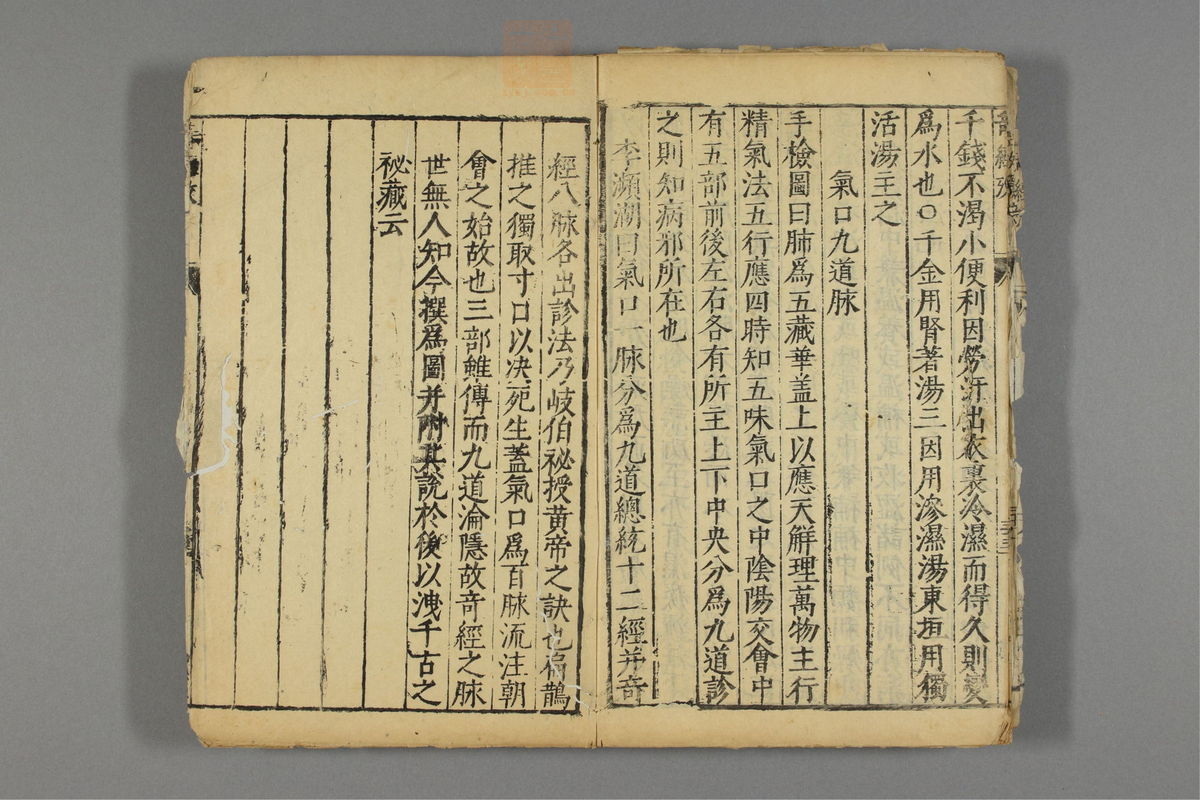 千錢不渴小便利因勞汗出衣裏冷濕而得久則變
爲水也○千金用腎著湯三因用滲濕湯東垣用獨
活湯主之
氣口九道脉
手檢圖曰肺爲五藏華盖上以應天解理萬物主行
精氣法五行應四時知五味氣口之中陰陽交會中
有五部前後左右各有所主上下中央分爲九道診
之則知病邪所在也
李瀕湖曰氣口一脉分爲九道總統十二經并竒
經八脉各出診法乃岐伯祕授黄帝之訣也扁鵲
推之獨取寸口以决死生蓋氣口爲百脉流注朝
會之始故也三部雖傳而九道淪隱故竒經之脉
世無人知今撰爲圖并附其說於後以洩千古之
祕藏云